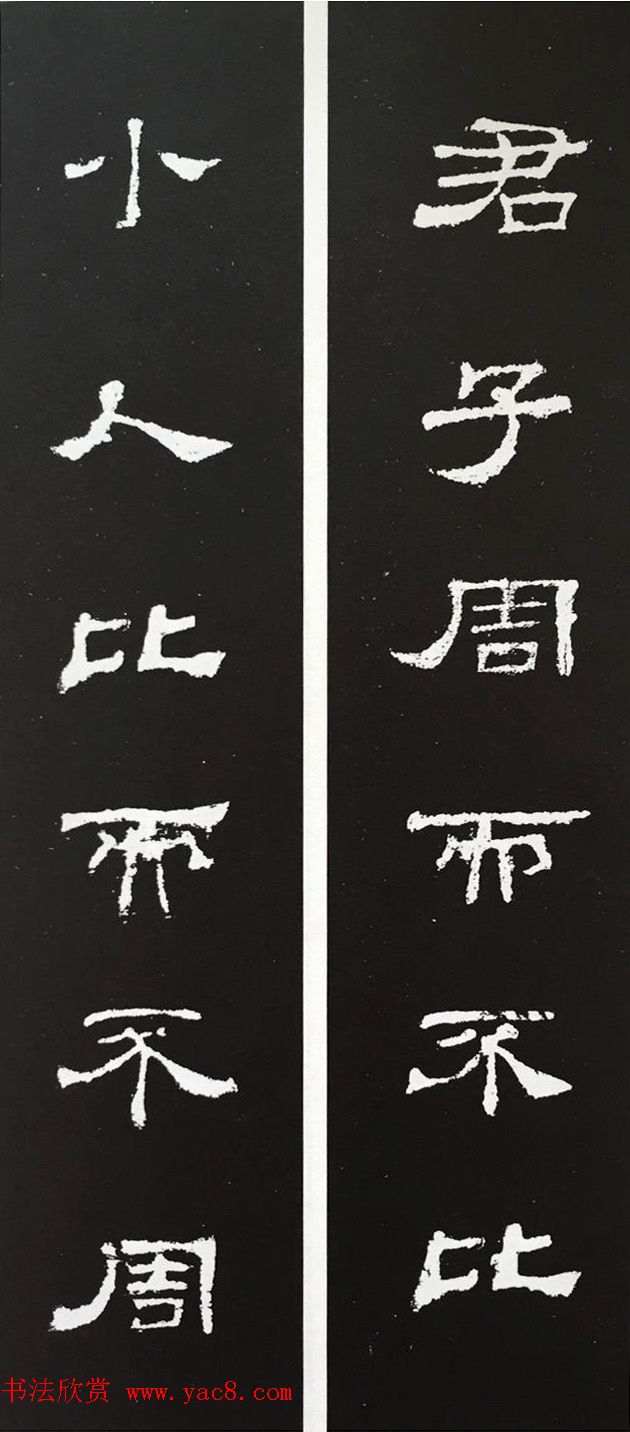 君子周而不比
小人比而不周
书法欣赏 www.yac8.com